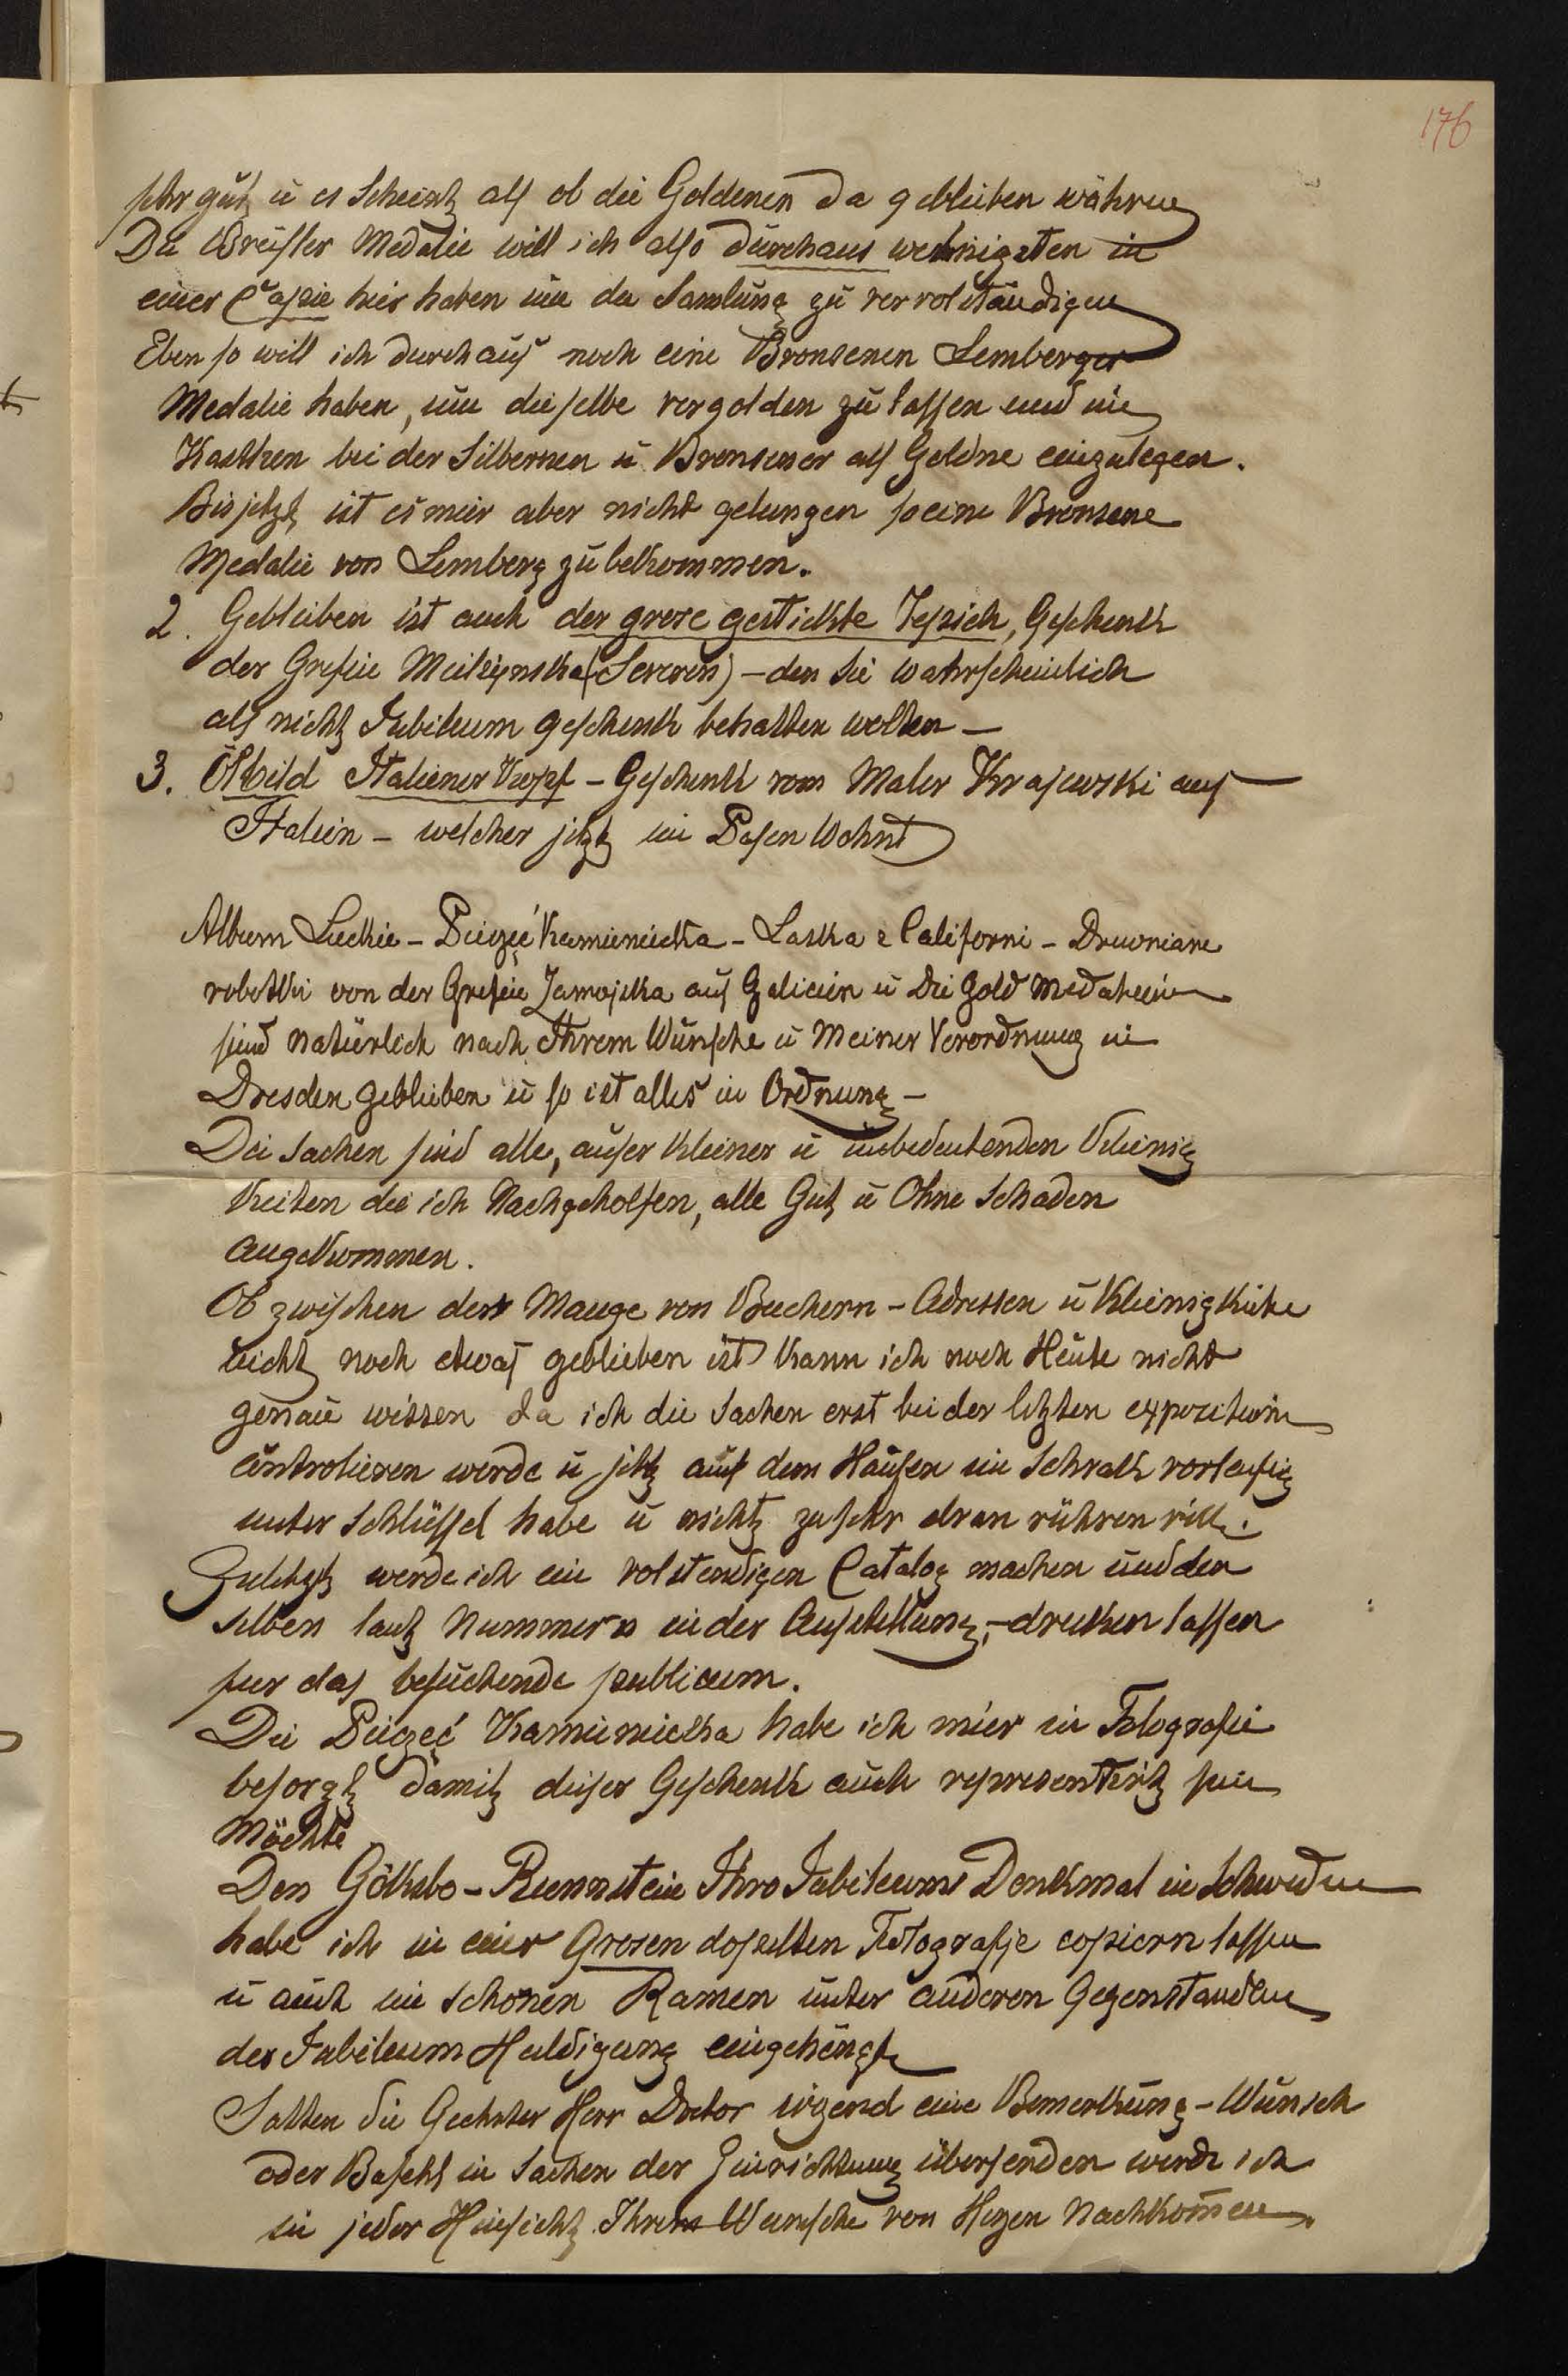 176
sehr gut u es Scheint als ob die Goldenen da geblieben währen
Die Medalie will ich also durchaus wehnigsten in
einer Copie hier haben um die Samlung zu vervolständigen
Eben so will ich durchaus noch eine Bronsenen Lemberger
Medalie haben, um dieselbe vergolden zu lassen und im
Kastken bei der Silbernen u Bronsener als Goldne einzulegen.
Bis jetzt ist es mir aber nicht gelungen so eine Bronsene
Medalie von Lemberg zu bekommen.
2. Geblieben ist auch der grose gestickte Tepich, Geschenk
der Grefin (Severin) – den Sie wahrscheinlich
als nicht Jubileum geschenk behalten wolten –
3. Ölbild Italiener Kopf – Geschenk vom Maler Krajewski aus
Italien – welcher jetzt in Posen Wohnt
Album Luckie – Pieczęć Kamienicka – Laska z Californi – Drewniane
robotki von der Grefin Zamojska aus Galicien u Die Gold Medalien
sind natürlich nach Ihrem Wunsche u Meiner Verordnung in
Dresden geblieben u so ist alles in Ordnung –
Die Sachen sind alle, auser kleiner u unbedeutenden Kleinig
keiten die ich Nachgeholfen, alle Gut u Ohne Schaden
angekommen.
Ob zwischen der Mange von Buchern – Adressen u Kleinigkeite
nicht noch etwas geblieben ist kann ich noch Heute nicht
genau wissen da ich die Sachen erst bei der letzten expozition
controlieren werde u jetzt auf dem Haufen im Schrank vorlaufig
unter Schlüssel habe u nicht zu sehr dran rühren will.
Zuletzt werde ich ein volstendigen Catalog machen und den
selben laut Nummern in der Aufstellung – drucken lassen
fur das besuchende publicum.
Die Pieczęć Kamienicka habe ich mier in Fotografie
besorgt damit dieser Geschenk auch representirt sein
Möchte
Den Gölksbo – Runnstein Ihro Jubileums Denkmal in Schweden
habe ich in einer Grosen dopelten Fotografje copiern lassen
u auch im schönen Ramen unter anderen Gegenstanden
der Jubileum Huldigung eingehängt
Solten Sie Geehrter Herr Doctor irgend eine Bemerkung – Wunsch
oder Bafehl in Sachen der Einrichtung übersenden werde ich
in jeder Hinsicht Ihrem Wunsche von Herzen Nachkomen.